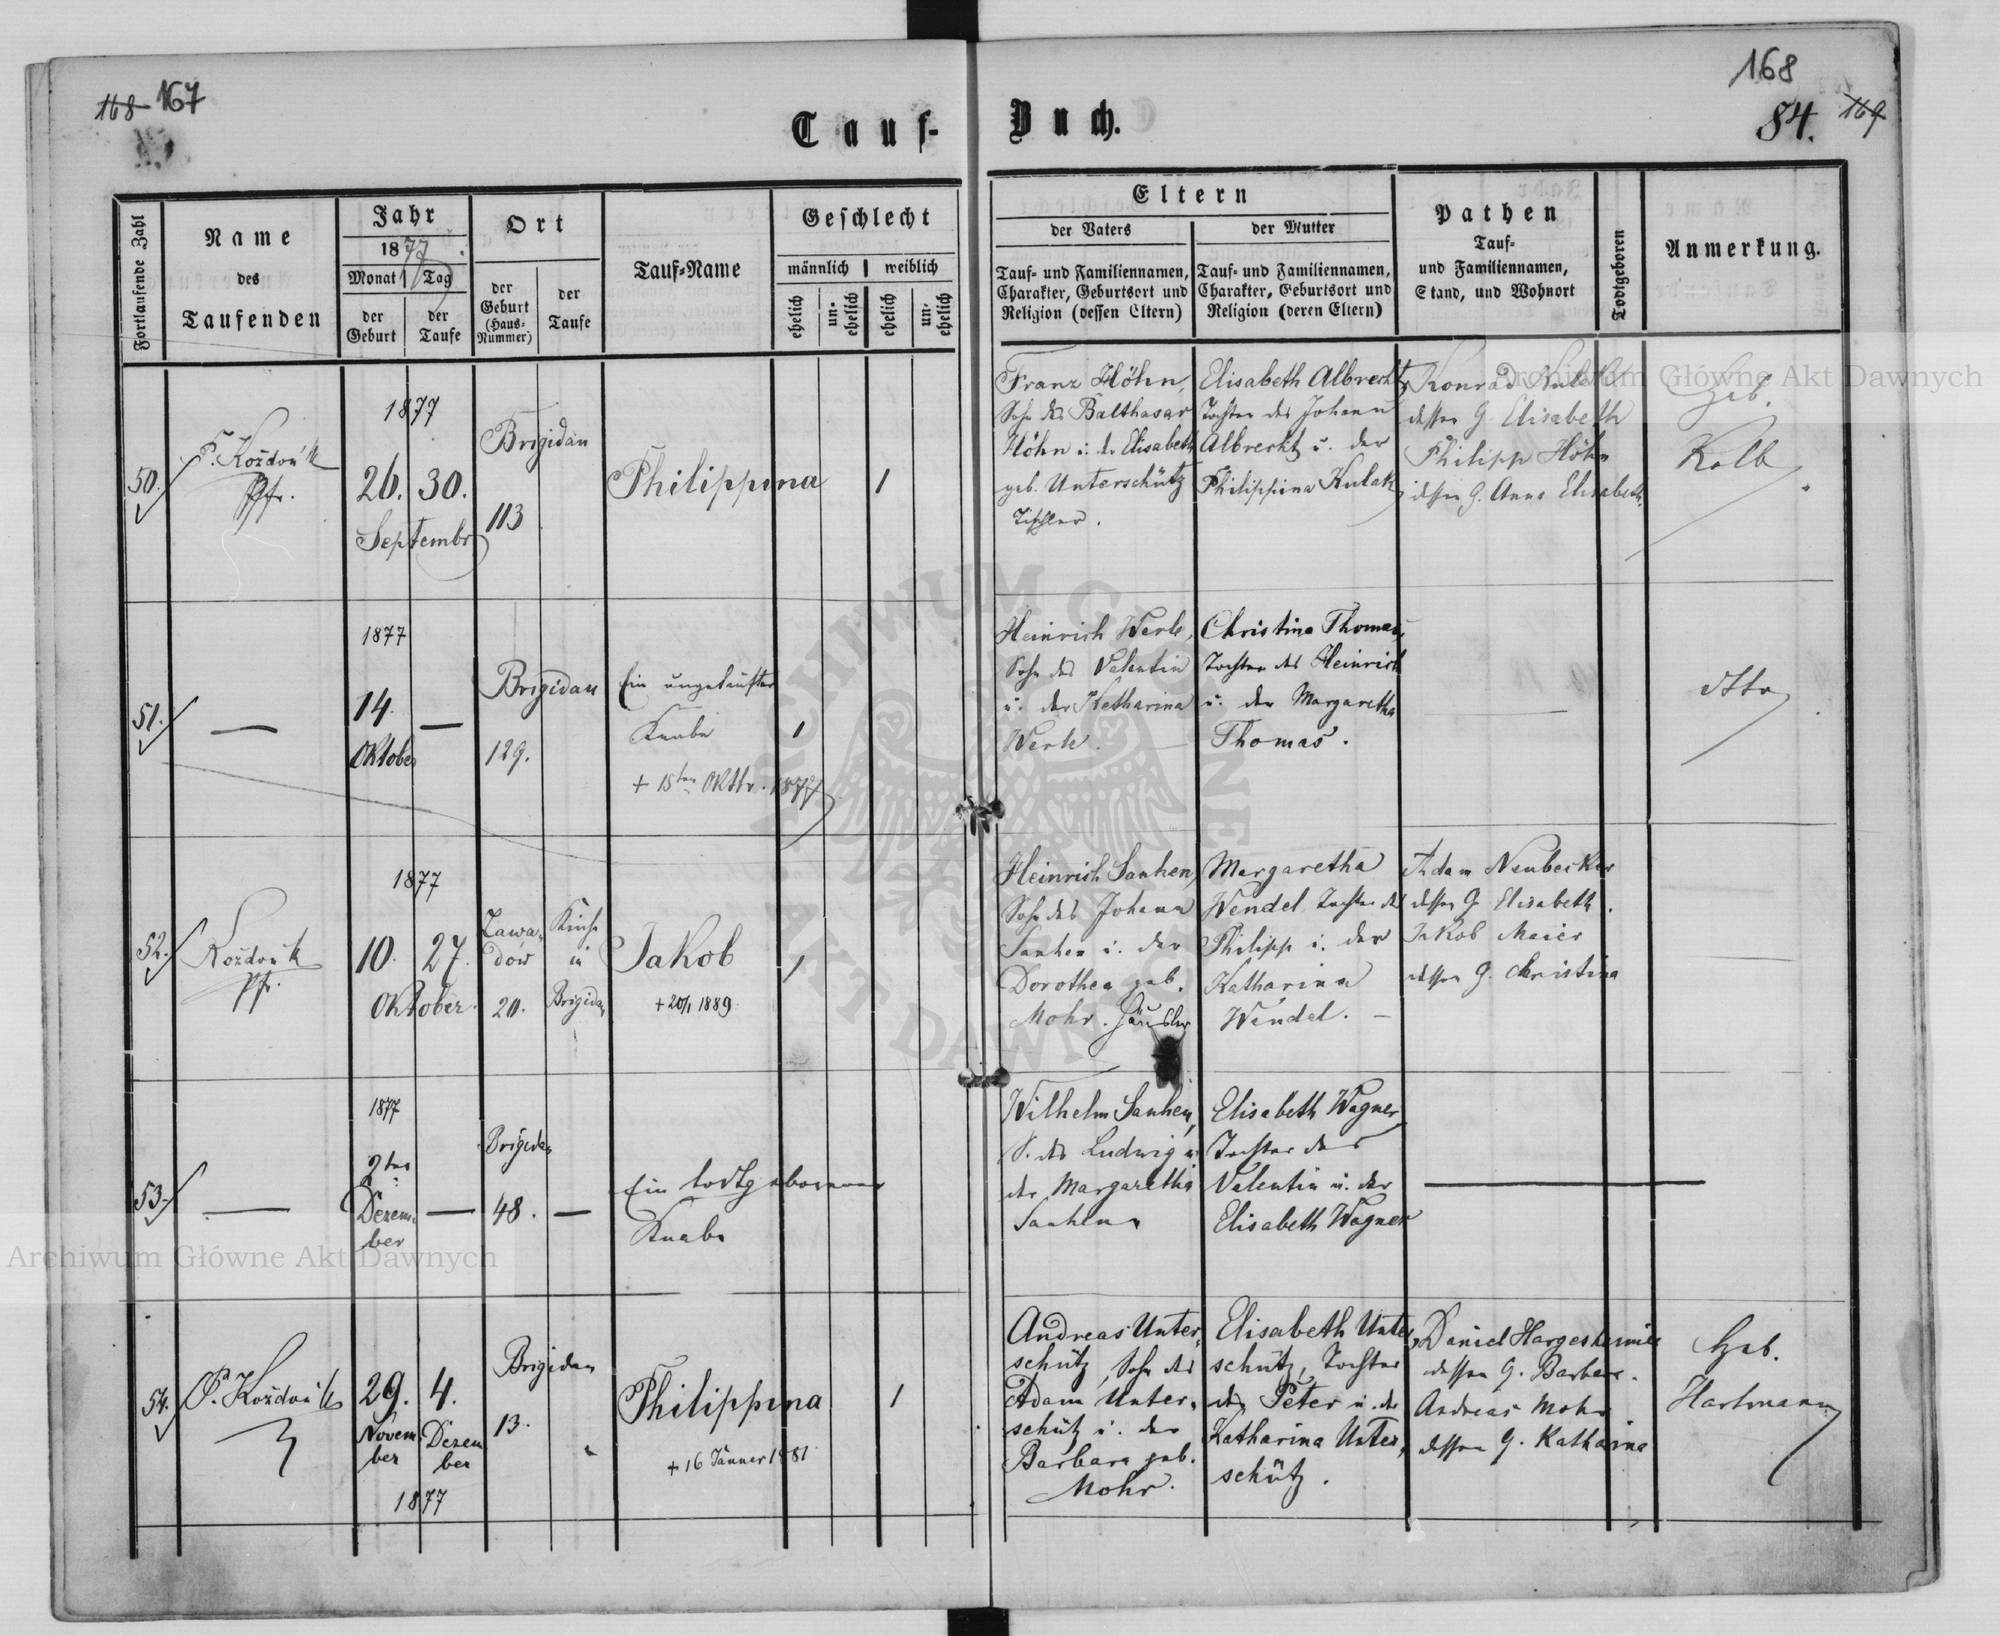 168 167
168
84. 169
Tauf-Buch.
Fortlaufende Zahl
Name
des
Taufenden
Jahr
1877.
Monat Tag
der Geburt
der Taufe
Ort
der
Geburt
(Haus-
Nummer)
der
Taufe
Tauf-Name
Geschlecht
männlich weiblich
ehelich
un-ehelich
ehelich
un-ehelich
Eltern
der Vaters
Tauf- und Familiennamen,
Charakter, Geburtsort und
Religion (dessen Eltern)
der Mutter
Tauf- und Familiennamen,
Charakter, Geburtsort und
Religion (deren Eltern)
Pathen
Tauf-
und Familiennamen,
Stand, und Wohnort
Todtgeboren
Anmerkung.
50.
Pfr.
1877
26. 30.
September
Brigidau
113
Philippina
1
Franz Höhn,
Sohn des Balthasar
Höhn u. der Elisabeth
geb. Unterschütz
Tischler.
Elisabeth Albrecht,
Tochter des Johann
Albrecht u. der
Philippina Kulak
Konrad
dessen G. Elisabeth
Philipp Höhn
dessen G. Anna Elisabeth.
Geb.
Kolb
51.
—
1877
14. —
Oktober
Brigidau
129.
Ein ungetaufter
Knabe
+ 15ten Oktbr. 1877
1
Heinrich Werle,
Sohn des Valentin
u. der Katharina
Werle.
Christina Thomas,
Tochter des Heinrich
u. der Margaretha
Thomas.
—
dtto
52.
Pfr.
1877
10. 27.
Oktober.
Zawa-
dów
20.
Kirche
in
Brigidau
Jakob
+ 20/1 1889
1
Heinrich Sauhen,
Sohn des Johann
Sauhen u. der
Dorothea geb.
Mohr. Häusler
Margaretha
Wendel Tochter des
Philipp u. der
Katharina
Wendel. —
Adam Neubecker
dessen G. Elisabeth.
Jakob Maier
dessen G. Christina
53.
—
1877
Dezem-
ber
—
Brigidau
48. —
Ein todtgeborener
Knabe
Wilhelm Sauhen,
S. des Ludwig u.
der Margaretha
Sauhen
Elisabeth Wagner,
Tochter des
Valentin u. der
Elisabeth Wagner
—
54.
29. 4.
Novem
ber
Dezem
ber
1877
Brigidau
13.
Philippina
+ 16 Jänner 1881
1
Andreas Unter-
schütz, Sohn des
Adam Unter-
schütz u. der
Barbara geb.
Mohr.
Elisabeth Unter-
schütz, Tochter
des Peter u. der
Katharina Unter-
schütz.
Daniel Hargesheimer
dessen G. Barbara.
Andreas Mohr
dessen G. Katharina
Geb.
Hartmann
Archiwum Główne Akt Dawnych
Archiwum Główne Akt Dawnych
ARCHIWUM GŁÓWNE AKT DAWNYCH